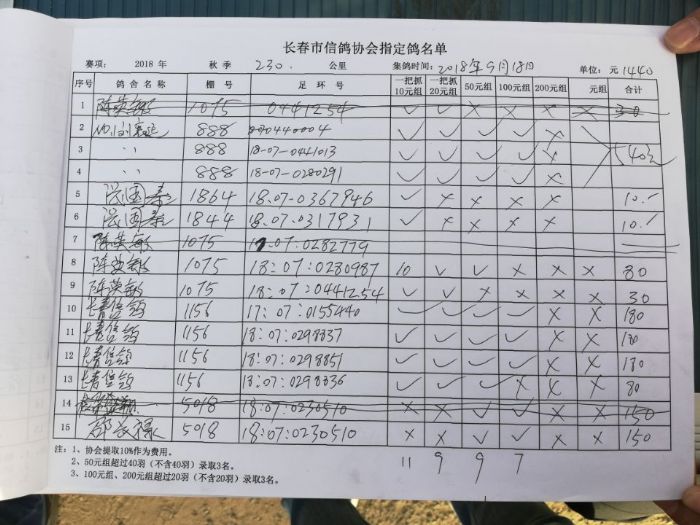 长春市信鸽协会指定鸽名单
赛项: 2018 年 秋 季 230. 公里 集鸽时间: 2018年9月18日 单位: 元 1440
序号 鸽 舍 名 称 棚 号 足 环 号 一把抓10元组 一把抓20元组 50元组 100元组 200元组 元组 合计
1 陈英敏 1075 0441254 ✓ ✓ × × × × 30
2 888 0440004 ✓ ✓ ✓ ✓ ×
3 〃 888 18-07-0441013 ✓ ✓ ✓ ✓ × 540元
4 〃 888 18-07-0280291 ✓ ✓ ✓ ✓ ×
5 1864 18.07-0367946 ✓ × × × × 10.
6 1844 18.07.0317931 ✓ × × × × 10.
7 陈英敏 1075 18:07:0282779
8 陈英敏 1075 18:07:0280987 10 ✓ ✓ × × × 80
9 陈英敏 1075 18:07:0441254 ✓ ✓ × × × × 30
10 长青信鸽 1156 17:07:0155440 ✓ ✓ ✓ ✓ × × 180
11 长青信鸽 1156 18:07:0298337 ✓ ✓ ✓ ✓ × × 180
12 长青信鸽 1156 18:07:0298851 ✓ ✓ ✓ ✓ × × 180
13 长青信鸽 1156 18:07:0298336 ✓ ✓ ✓ × × × 80
14 5098 18:07:0230510 × × ✓ ✓ × × 150
15 5098 18:07:0230510 × × ✓ ✓ × × 150
注: 1、协会提取10%作为费用。
2、50元组超过40羽(不含40羽)录取3名。
3、100元组、200元组超过20羽(不含20羽)录取3名。
11 9 9 7